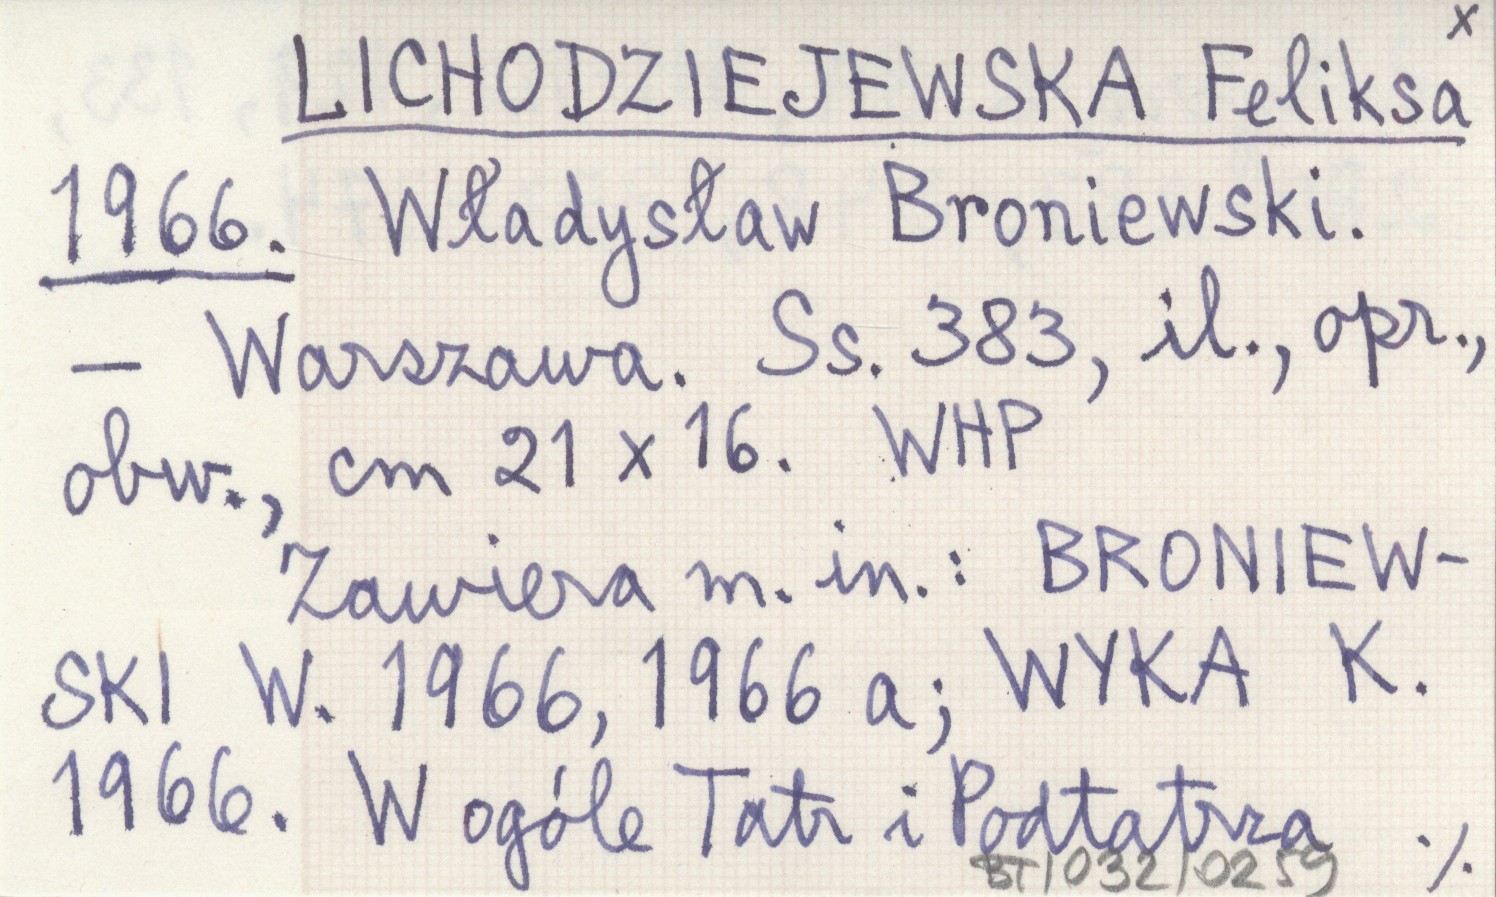 x
LICHODZIEJEWSKA Feliksa
1966. Władysław Broniewski.
— Warszawa. Ss. 383, il., opr.,
obw., cm 21 x 16. WHP
Zawiera m. in.: BRONIEW-
SKI W. 1966, 1966 a; WYKA K.
1966. W ogóle Tatr i Podtatrza ./.
BT/032/0259